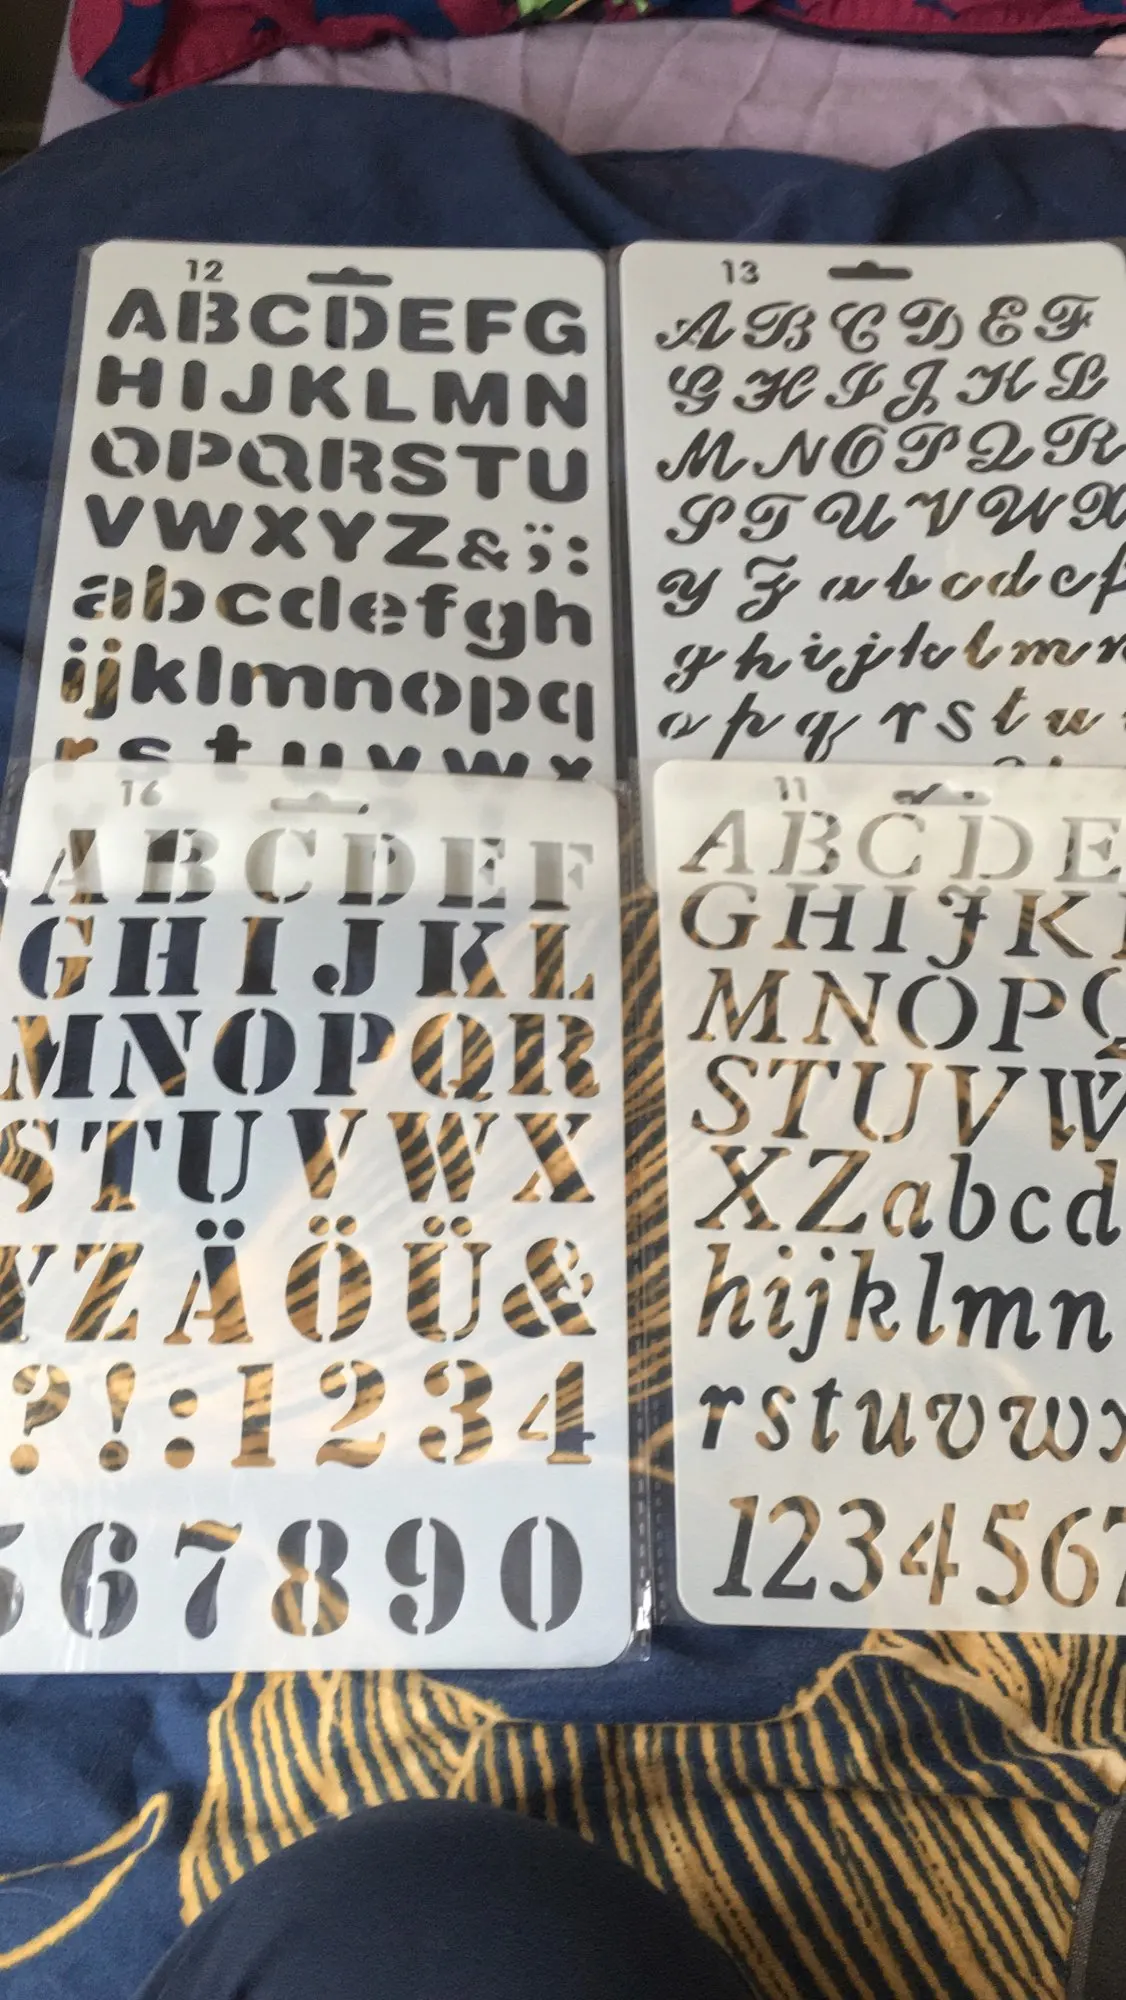 12
ABCDEFG
HIJKLMN
OPQRSTU
VWXYZ&;:
abcdefgh
ijklmnopq
rstuvwx
13
ABCDEF
GHIJKL
MNOPQR
STUVWX
YZabcdef
ghijklmn
opqrstu
16
ABCDEF
GHIJKL
MNOPQR
STUVWX
YZÄÖÜ&
?!:1234
567890
11
ABCDE
GHIJK
MNOPQ
STUVW
XZabcd
hijklmn
rstuvwx
1234567